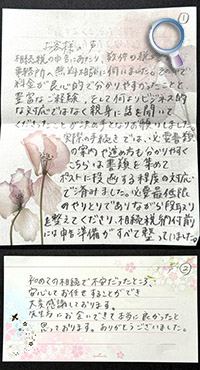 ①
お客様の声
相続税の申告にあたり、数件の税
事務所へ無料相談に伺いました。その中で
料金が良心的で分かりやすかったことと
豊富なご経験、そして何よりビジネス的
な対応ではなく親身に話を聞いて
くださったことが決め手となりお願いしました。
実際の手続きでは、必要書類
の案内や進め方も分かりやすく
こちらは書類を集めて
ポストに投函する程度の対応
で済みました。必要最低限
のやりとりでありながら段取り
を整えてくださり、相続税納付前
には申告準備がすべて整っていました。
②
初めての相続で不安だったところ、
安心してお任せすることができ
大変感謝しております。
先生方にお会いできて本当に良かったと
思っております。ありがとうございました。